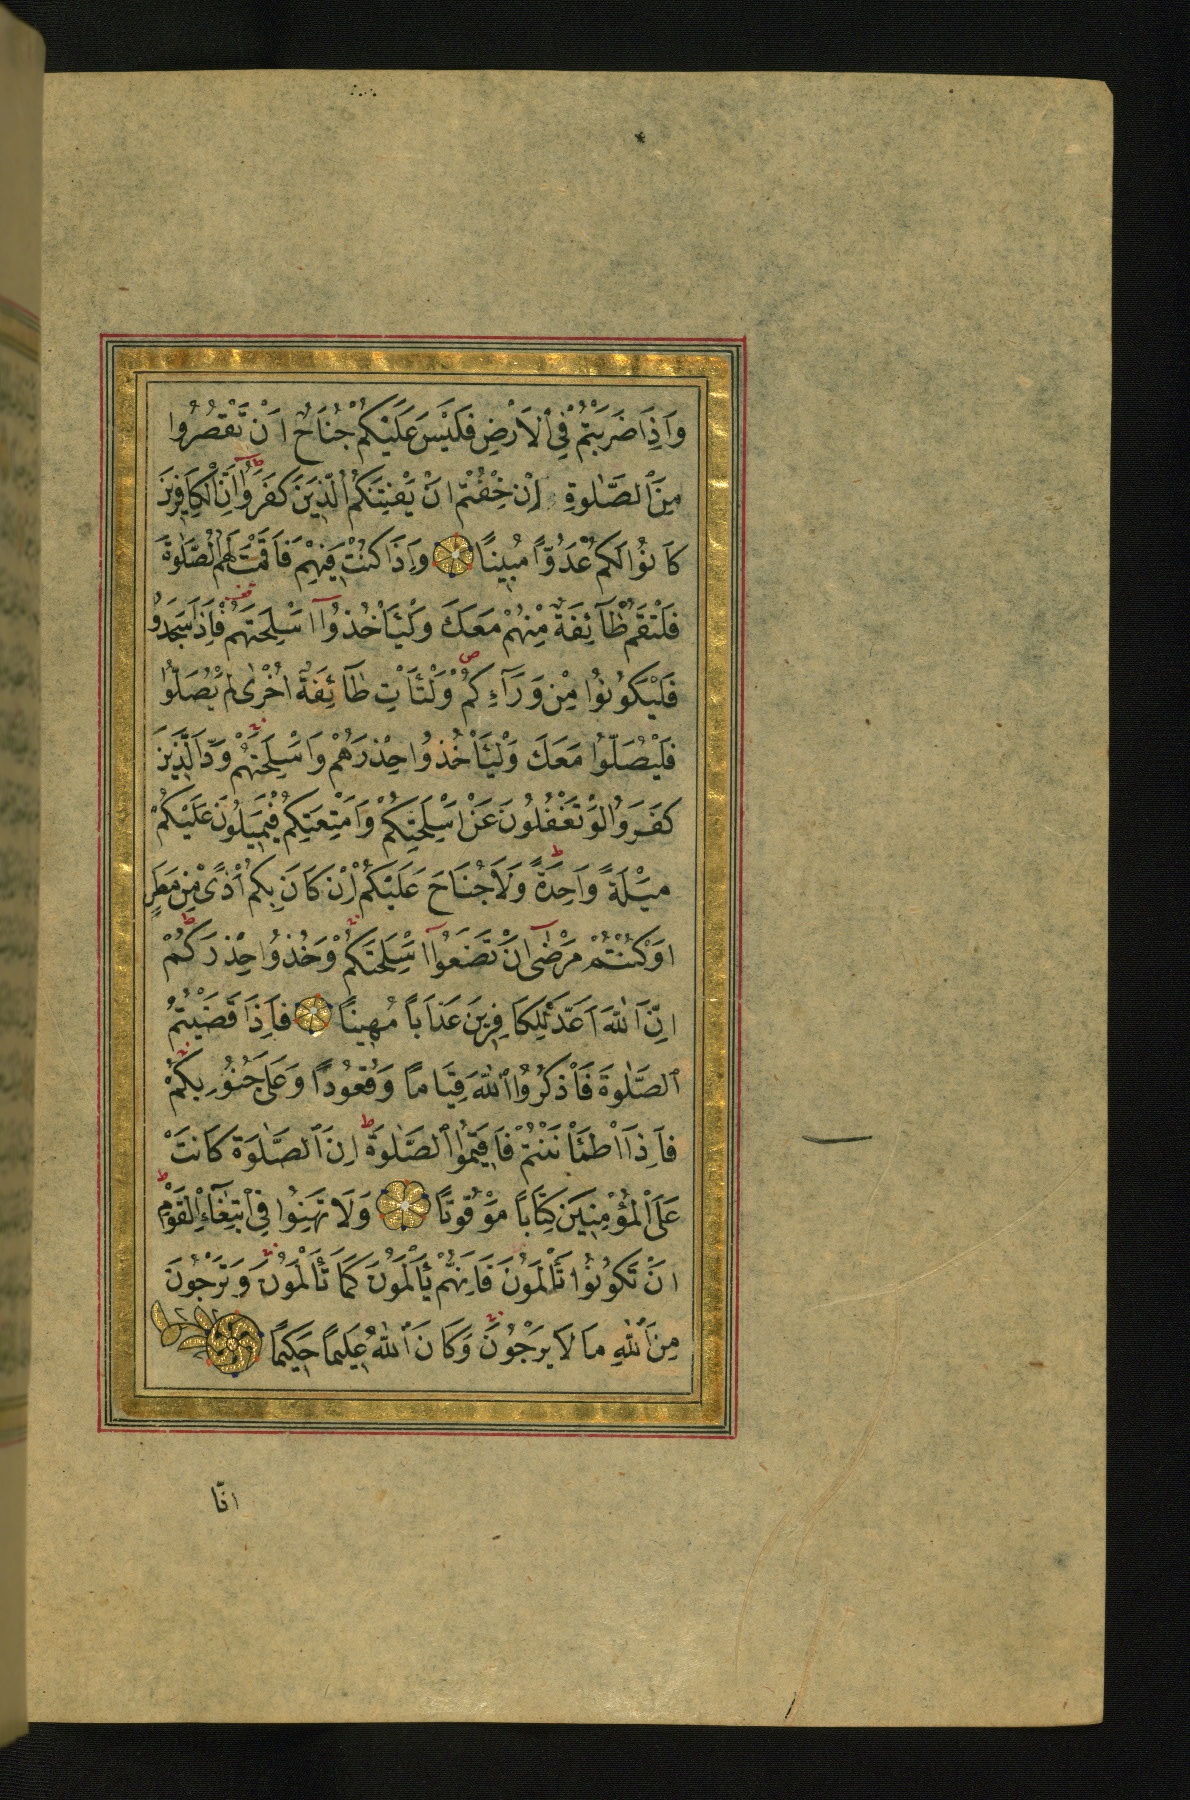 وَاِذَا ضَرَبْتُمْ فِي الْاَرْضِ فَلَيْسَ عَلَيْكُمْ جُنَاحٌ اَنْ تَقْصُرُوا
مِنَ الصَّلٰوةِ اِنْ خِفْتُمْ اَنْ يَفْتِنَكُمُ الَّذِينَ كَفَرُوا ط اِنَّ الْكَافِرِينَ
كَانُوا لَكُمْ عَدُوًّا مُبِينًا وَاِذَا كُنْتَ فِيهِمْ فَاَقَمْتَ لَهُمُ الصَّلٰوةَ
فَلْتَقُمْ طَآئِفَةٌ مِنْهُمْ مَعَكَ وَلْيَأْخُذُوآ اَسْلِحَتَهُمْ قف فَاِذَا سَجَدُوا
فَلْيَكُونُوا مِنْ وَرَآءِكُمْ ص وَلْتَأْتِ طَآئِفَةٌ اُخْرٰى لَمْ يُصَلُّوا
فَلْيُصَلُّوا مَعَكَ وَلْيَأْخُذُوا حِذْرَهُمْ وَاَسْلِحَتَهُمْ ج وَدَّ الَّذِينَ
كَفَرُوا لَوْ تَغْفُلُونَ عَنْ اَسْلِحَتِكُمْ وَاَمْتِعَتِكُمْ فَيَمِيلُونَ عَلَيْكُمْ
مَيْلَةً وَاحِدَةً ط وَلَا جُنَاحَ عَلَيْكُمْ اِنْ كَانَ بِكُمْ اَذًى مِنْ مَطَرٍ
اَوْ كُنْتُمْ مَرْضٰىٓ اَنْ تَضَعُوآ اَسْلِحَتَكُمْ ج وَخُذُوا حِذْرَكُمْ ط
اِنَّ اللّٰهَ اَعَدَّ لِلْكَافِرِينَ عَذَابًا مُهِينًا فَاِذَا قَضَيْتُمُ
الصَّلٰوةَ فَاذْكُرُوا اللّٰهَ قِيَامًا وَقُعُودًا وَعَلٰى جُنُوبِكُمْ ج
فَاِذَا اطْمَأْنَنْتُمْ فَاَقِيمُوا الصَّلٰوةَ ط اِنَّ الصَّلٰوةَ كَانَتْ
عَلَى الْمُؤْمِنِينَ كِتَابًا مَوْقُوتًا وَلَا تَهِنُوا فِي ابْتِغَآءِ الْقَوْمِ ط
اِنْ تَكُونُوا تَأْلَمُونَ فَاِنَّهُمْ يَأْلَمُونَ كَمَا تَأْلَمُونَ ج وَتَرْجُونَ
مِنَ اللّٰهِ مَا لَا يَرْجُونَ ج وَكَانَ اللّٰهُ عَلِيمًا حَكِيمًا
انّا